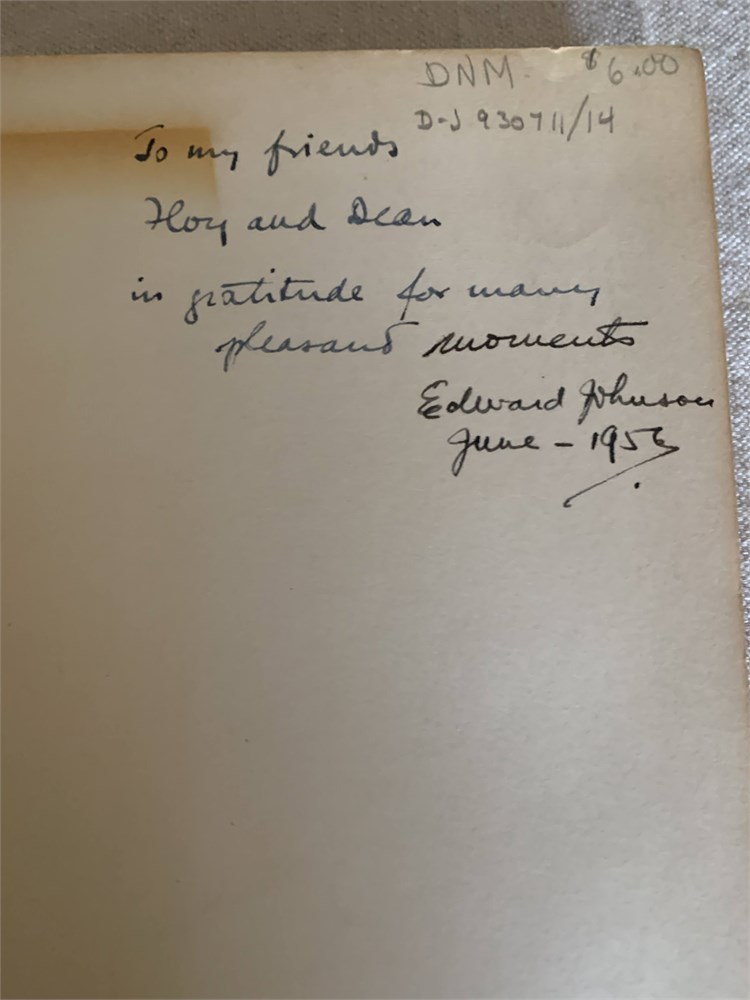 DNM. $6.00
D-J 930711/14
To my friends
Floy and Dean
in gratitude for many
pleasant moments
Edward Johnson
June - 1956